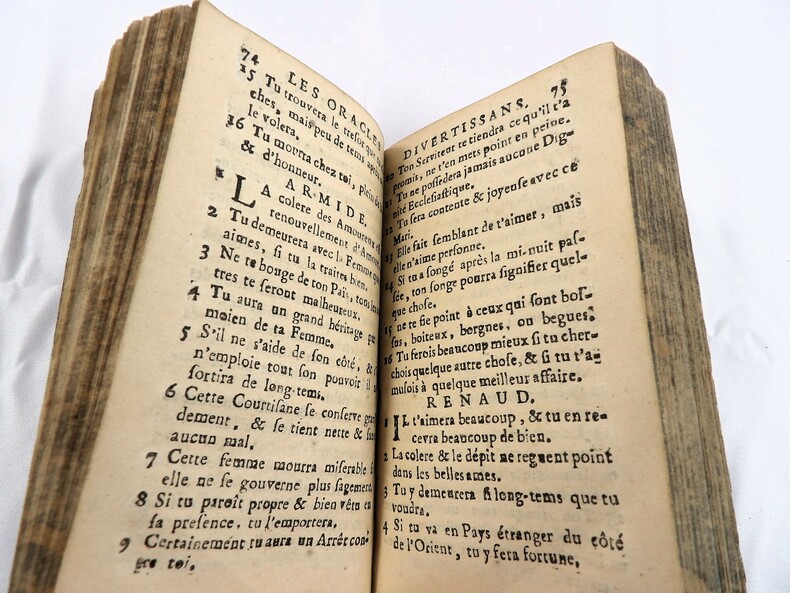 74
LES ORACLES
15 Tu trouvera le treſor que
ches, mais peu de tems après
le volera.
16 Tu mourra chez toi, plein de
& d'honneur.
ARMIDE.
1 LA colere des Amoureux
renouvellement d'Amour
2 Tu demeurera avec la Femme que
aimes, ſi tu la traites bien,
3 Ne te bouge de ton Païs, tous
tres te ſeront malheureux.
4 Tu aura un grand héritage par
moien de ta Femme.
5 S'il ne s'aide de ſon côté, &
n'emploie tout ſon pouvoir il
ſortira de long-tems.
6 Cette Courtiſane ſe conſerve
dement, & ſe tient nette &
aucun mal.
7 Cette femme mourra miſerable ſi
elle ne ſe gouverne plus ſagement.
8 Si tu paroît propre & bien vêtu en
ſa preſence, tu l'emportera.
9 Certainement tu aura un Arrêt con-
tre toi.
75
DIVERTISSANS.
10 Ton Servitent te tiendra ce qu'il t'a
promis, ne t'en mets point en peine.
11 Tu ne poſſedera jamais aucune Dig-
nité Eccleſiaſtique.
12 Tu ſera contente & joyeuſe avec ce
Mari.
13 Elle fait ſemblant de t'aimer, mais
elle n'aime perſonne.
14 Si tu a ſongé après la mi-nuit paſ-
ſée, ton ſonge pourra ſignifier quel-
que choſe.
15 ne te fie point à ceux qui ſont boſ-
ſus, boiteux, borgnes, ou begues.
16 Tu ferois beaucoup mieux ſi tu cher-
chois quelque autre choſe, & ſi tu t'a-
muſois à quelque meilleur affaire.
RENAUD.
1 IL t'aimera beaucoup, & tu en re-
cevra beaucoup de bien.
2 La colere & le dépit ne regnent point
dans les belles ames.
3 Tu y demeurera ſi long-tems que tu
voudra.
4 Si tu va en Pays étranger du côté
de l'Orient, tu y fera fortune.